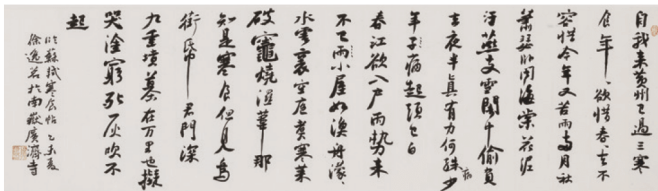 自我来黃州已過三寒
食年々欲惜春去不
容惜今年又苦雨兩月秋
蕭瑟卧聞海棠花泥
汙燕支雪闇中偷負
去夜半真有力何殊少病
年子病起頭已白
春江欲入户雨勢来
不已雨小屋如漁舟濛々
水雲裏空庖煮寒菜
破竈燒濕葦那
知是寒食但見烏
銜帋君門深
九重墳墓在万里也擬
哭塗窮死灰吹不
起
临蘇軾寒食帖乙未夏
徐逸若於南嶽廣濟寺